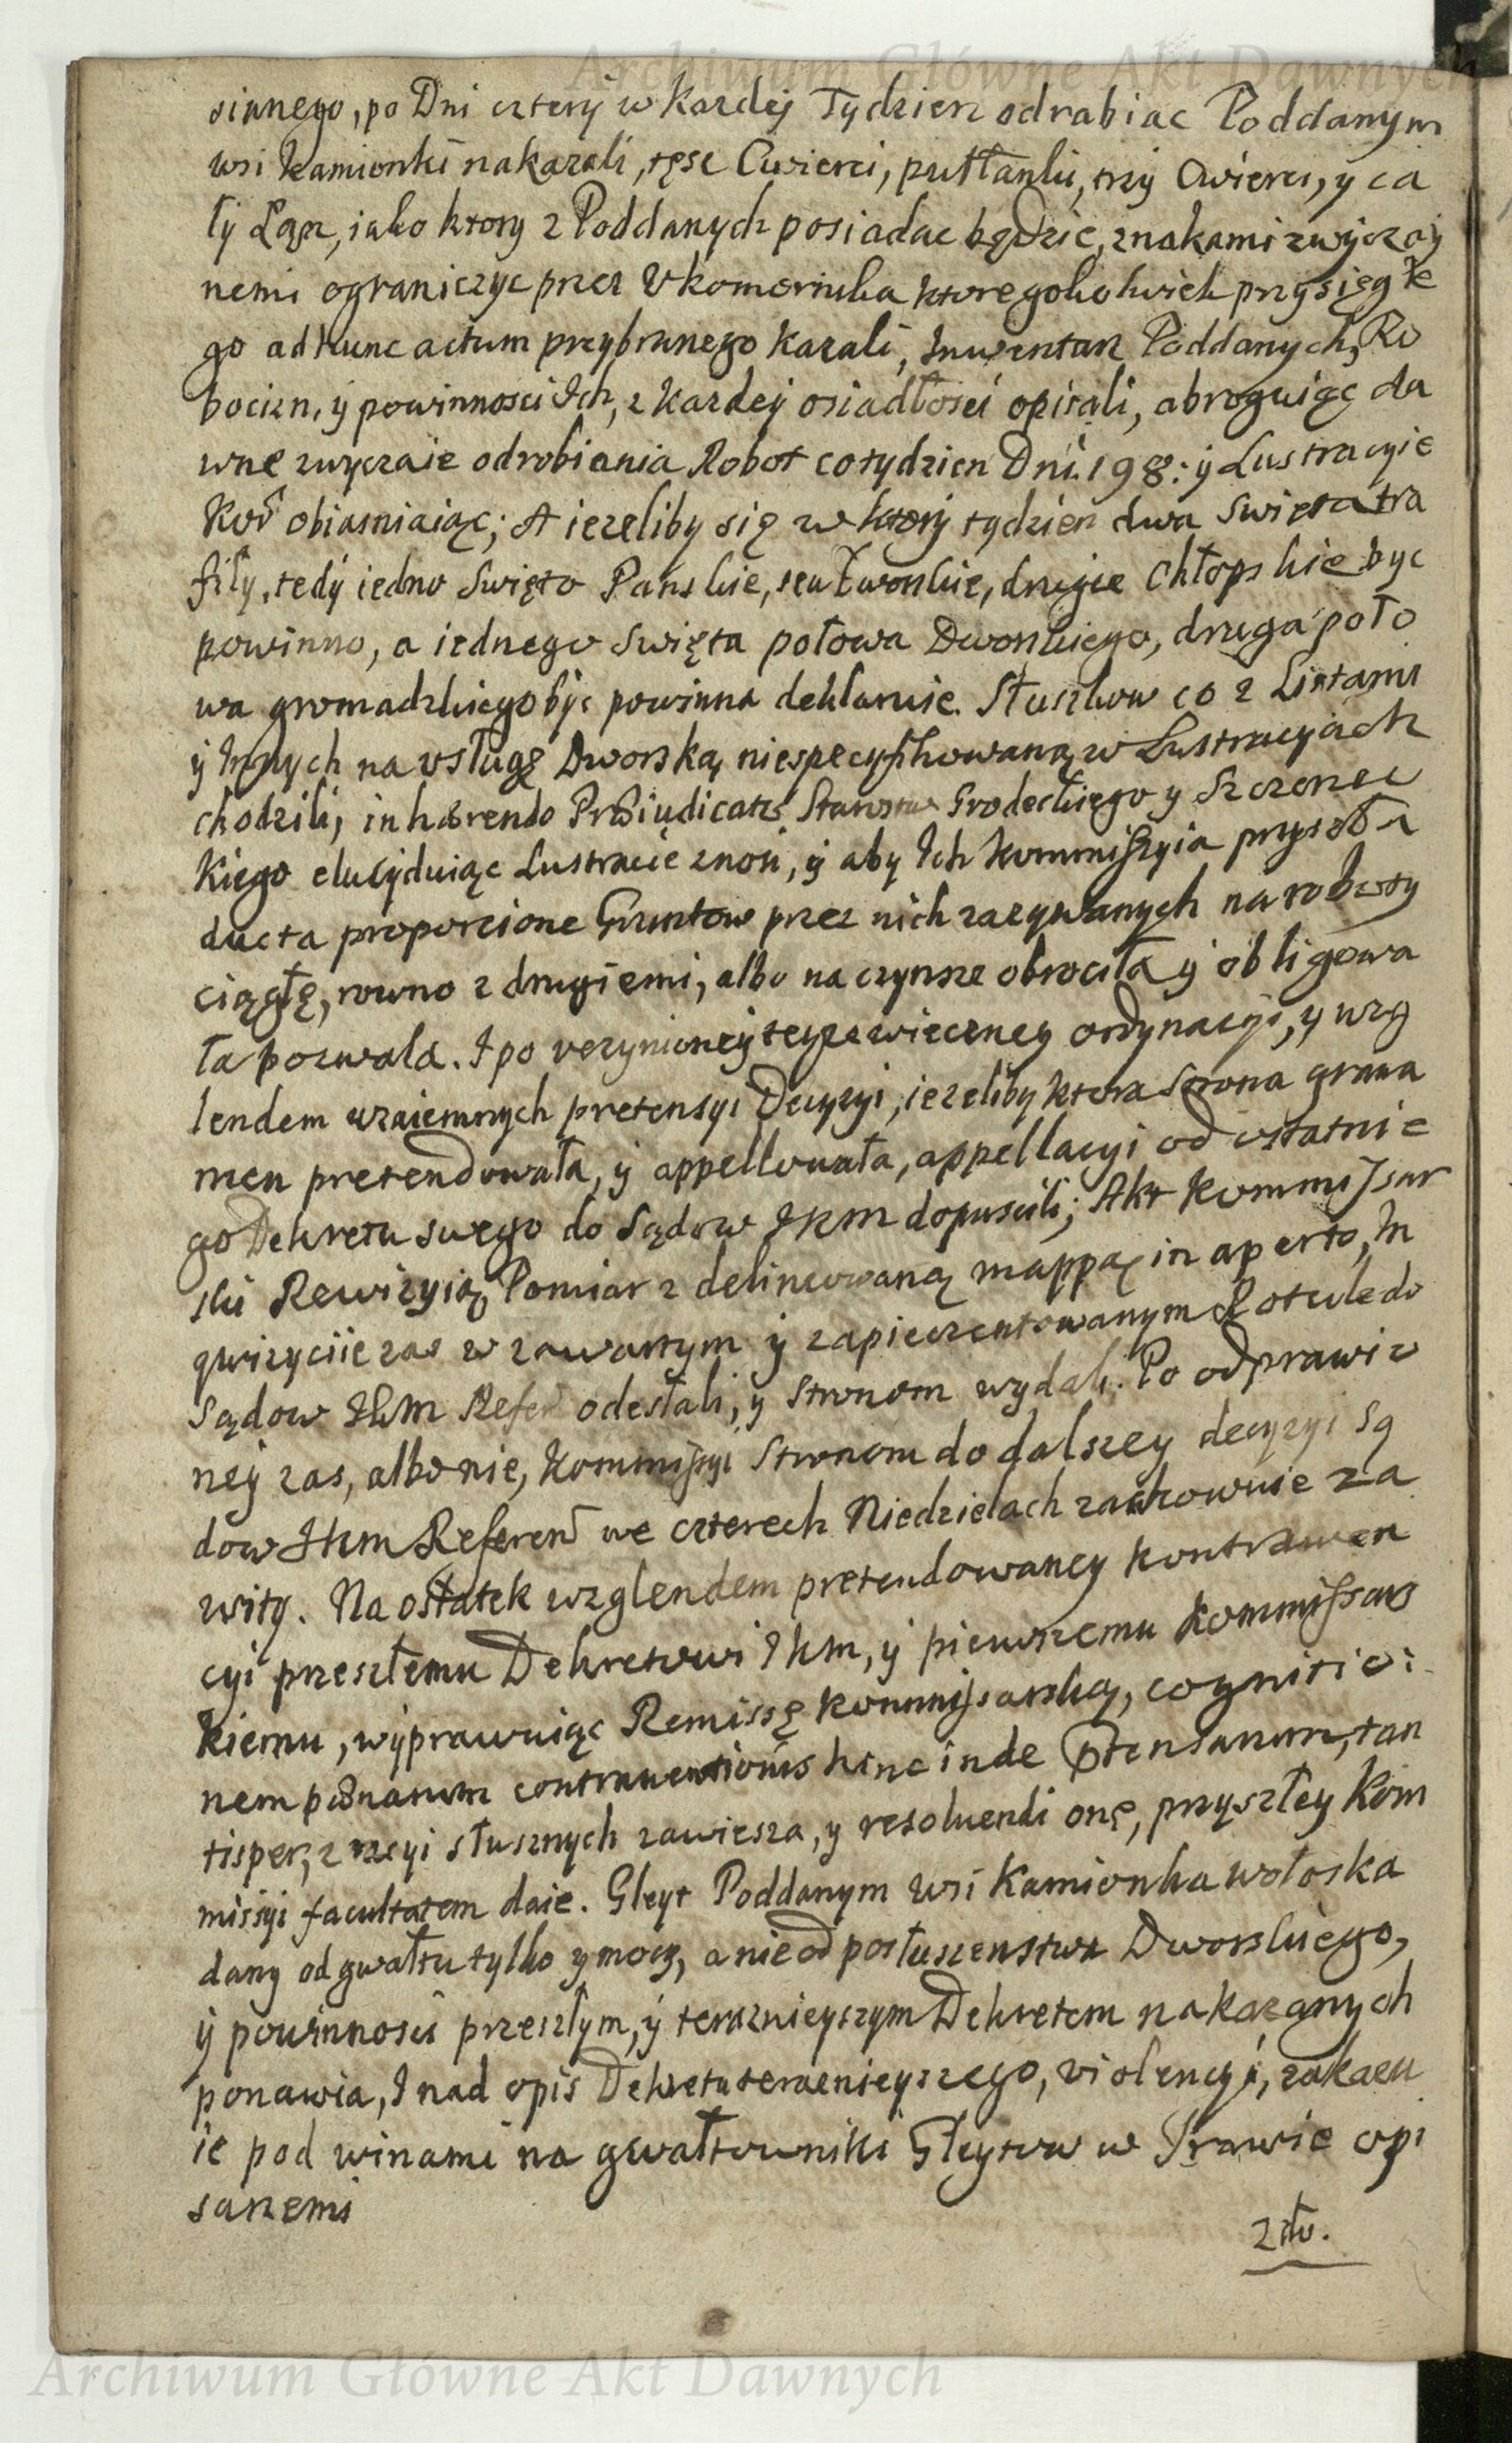 Archiwum Główne Akt Dawnych
sinnego, po Dni cztery w kazdej Tydzien odrabiac Poddanym
wsi Kamionki nakazali, tęsz Cwierci, pułłanki, trzy Cwierci, y ca
ły Łan, iako ktory z Poddanych posiadac będzie, znakami zwyczay
nemi ograniczyc przez Vkomornika ktoregokolwiek przysięgłe
go ad hunc actum przybranego kazali, Inwentarz Poddanych, Ro
bocizn, ÿ powinnosci Ich, z kazdeÿ osiadłosci opisali, abroguiąc da
wne zwyczaie odrobiania Robot co tydzien Dni. 198: ÿ Lustracyie
Kor obiasniaiąc; A iezeliby się w ktory tydzien dwa Swięta tra
fiły, tedÿ iedno Swięto Panskie, seu Dworskie, drugie Chłopskie byc
powinno, a iednego Swięta połowa Dworskiego, druga poło
wa gromadzkiego byc powinna deklaruie. Słuzkow co z Listami
ÿ Innych na vsługę Dworską niespecyfikowaną w Lustracyiach
chodzili, inhærendo Præiudicatis Starostw Grodeckiego y Szczerzec
kiego elucyduiąc Lustracie znosi, ÿ aby Ich Kommissyia przyszła
ducta proporcione Gruntow przez nich zazywanych na roboty
ciągłę, rowno z drugiemi, albo na czynsze obrociła y obligowa
ła pozwala. I po vczynioney teyze wieczney ordynacyi, y wzg
lendem wzaiemnych pretensyi Decyzyi, iezeliby ktora Strona grawa
men pretendowała, ÿ appellowała, appellacyi od ostatnie
go Dekretu swego do Sądow JKM dopuscili; Akt Kommissar
ski Rewizyią, Pomiar z delineowaną mappą in aperto, In
qwizyciie zas w zawartym ÿ zapieczentowanym Rotule do
Sądow JKM Refer odesłali, y Stronom wydali. Po odprawio
neÿ zas, albo nie, Kommissyi Stronom do dalszey decyzyi Są
dow JKM Referen we czterech Niedzielach zachowuie za
wity. Na ostatek wzglendem pretendowaney kontrawen
cyi przeszłemu Dekretowi JKM, ÿ pierwszemu Kommissars
kiemu, wyprawuiąc Remissę Kommissarską, cognitio:
nem pænarum contraventionis hinc inde ptensarum, tan
tisper, z racyi słusznych zawiesza, y resoluendi onę, przyszłey Kom
missyi facultatem daie. Gleyt Poddanym wsi Kamionka wołoska
dany od gwałtu tylko y mocy, a nie od posłuszenstwa Dworskiego,
ÿ powinnosci przeszłym, ÿ teraznieyszym Dekretem nakazanych
ponawia, I nad opis Dekretu teraznieyszego, violencyi, zakazu
ie pod winami na gwałtowniki Gleytow w Prawie opi
sanemi
zło.
Archiwum Główne Akt Dawnych